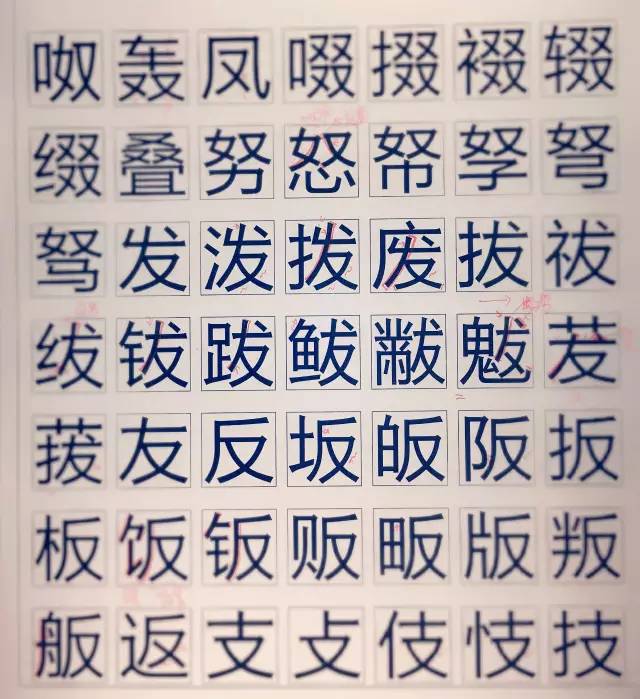 呶轰凤啜掇裰辍
缀叠努怒帑孥弩
驽发泼拨废拔祓
绂钹跋鲅黻魃茇
菝友反坂皈阪扳
板饭钣贩畈版叛
舨返支攴伎忮技